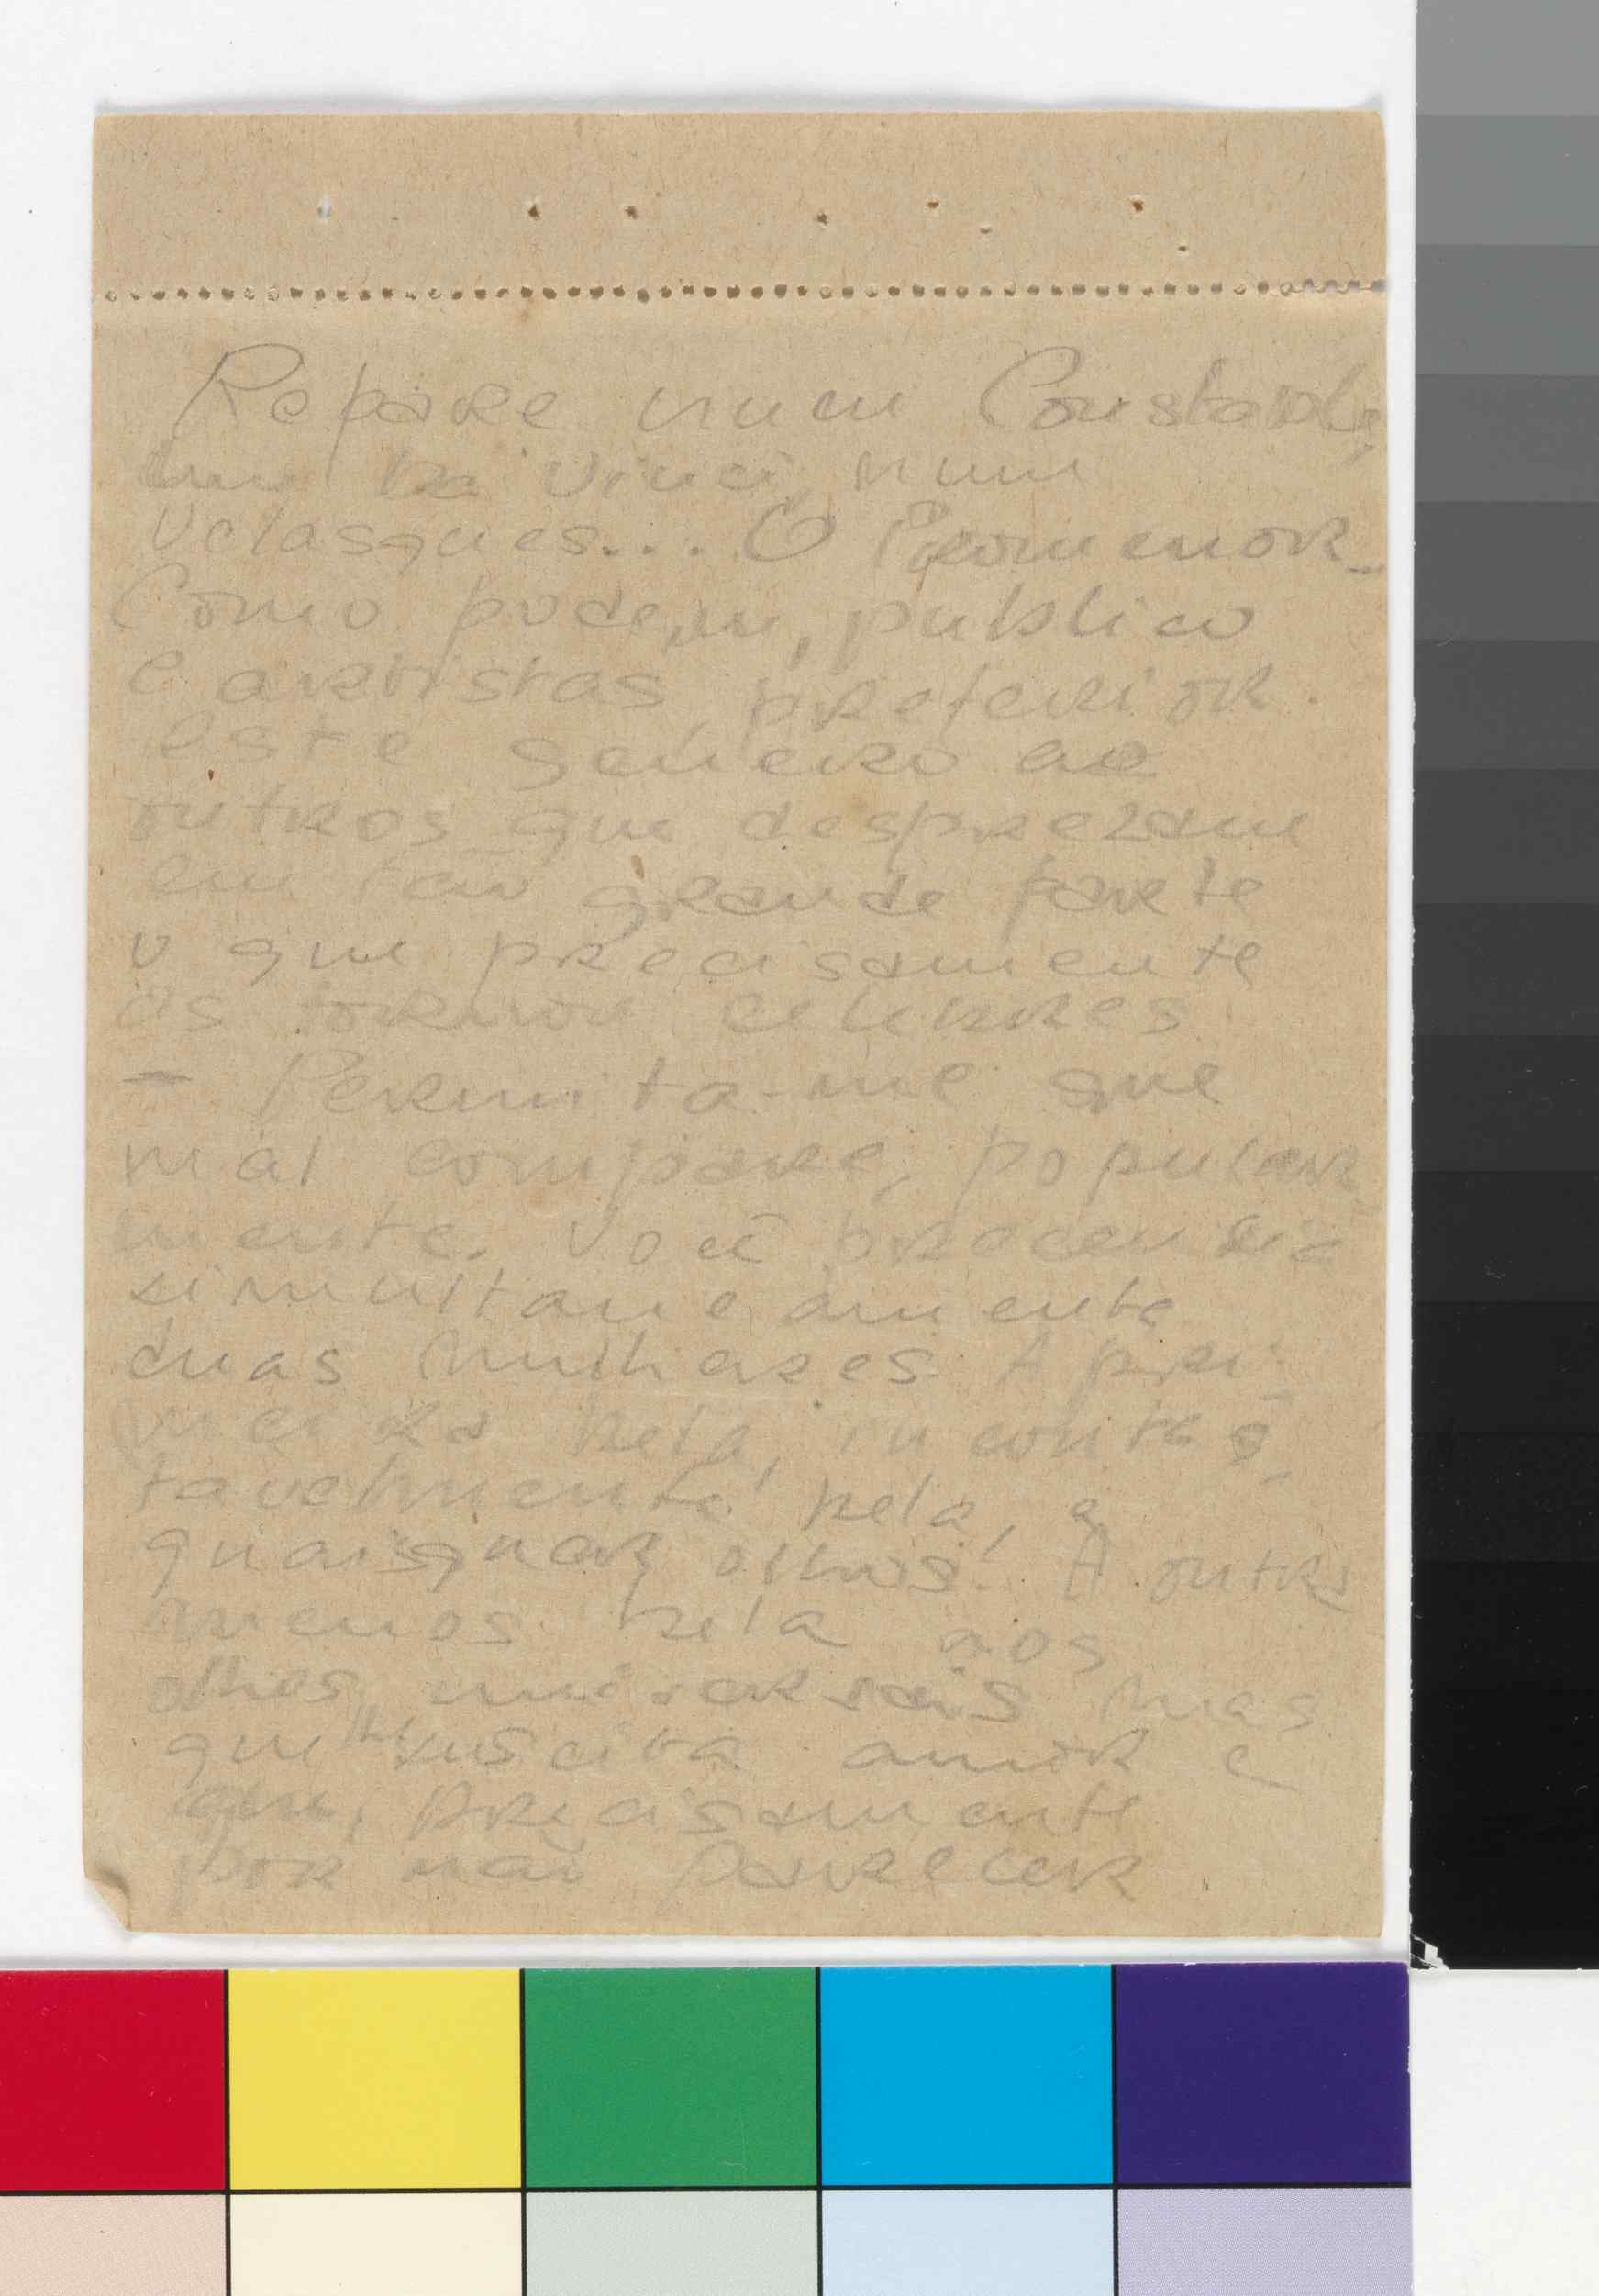 Repare num Constable,
um Da Vinci, num
Velasques... O Promenor_
Como podem, publico
e artistas, preferior
este genero ao
outros que desprezam
em tão grande parte
o que precisamente
os tornou celebres
- Permita-me que
mal compare, popular
mente. Você
simultaneamente
duas mulheres. A pri-
meira bela, incontes-
tavelmente bela, a
quaisquer olhos. A outra
menos bela aos
olhos universais mas
que lhe suscita amor e
que, precisamente
por não parecer